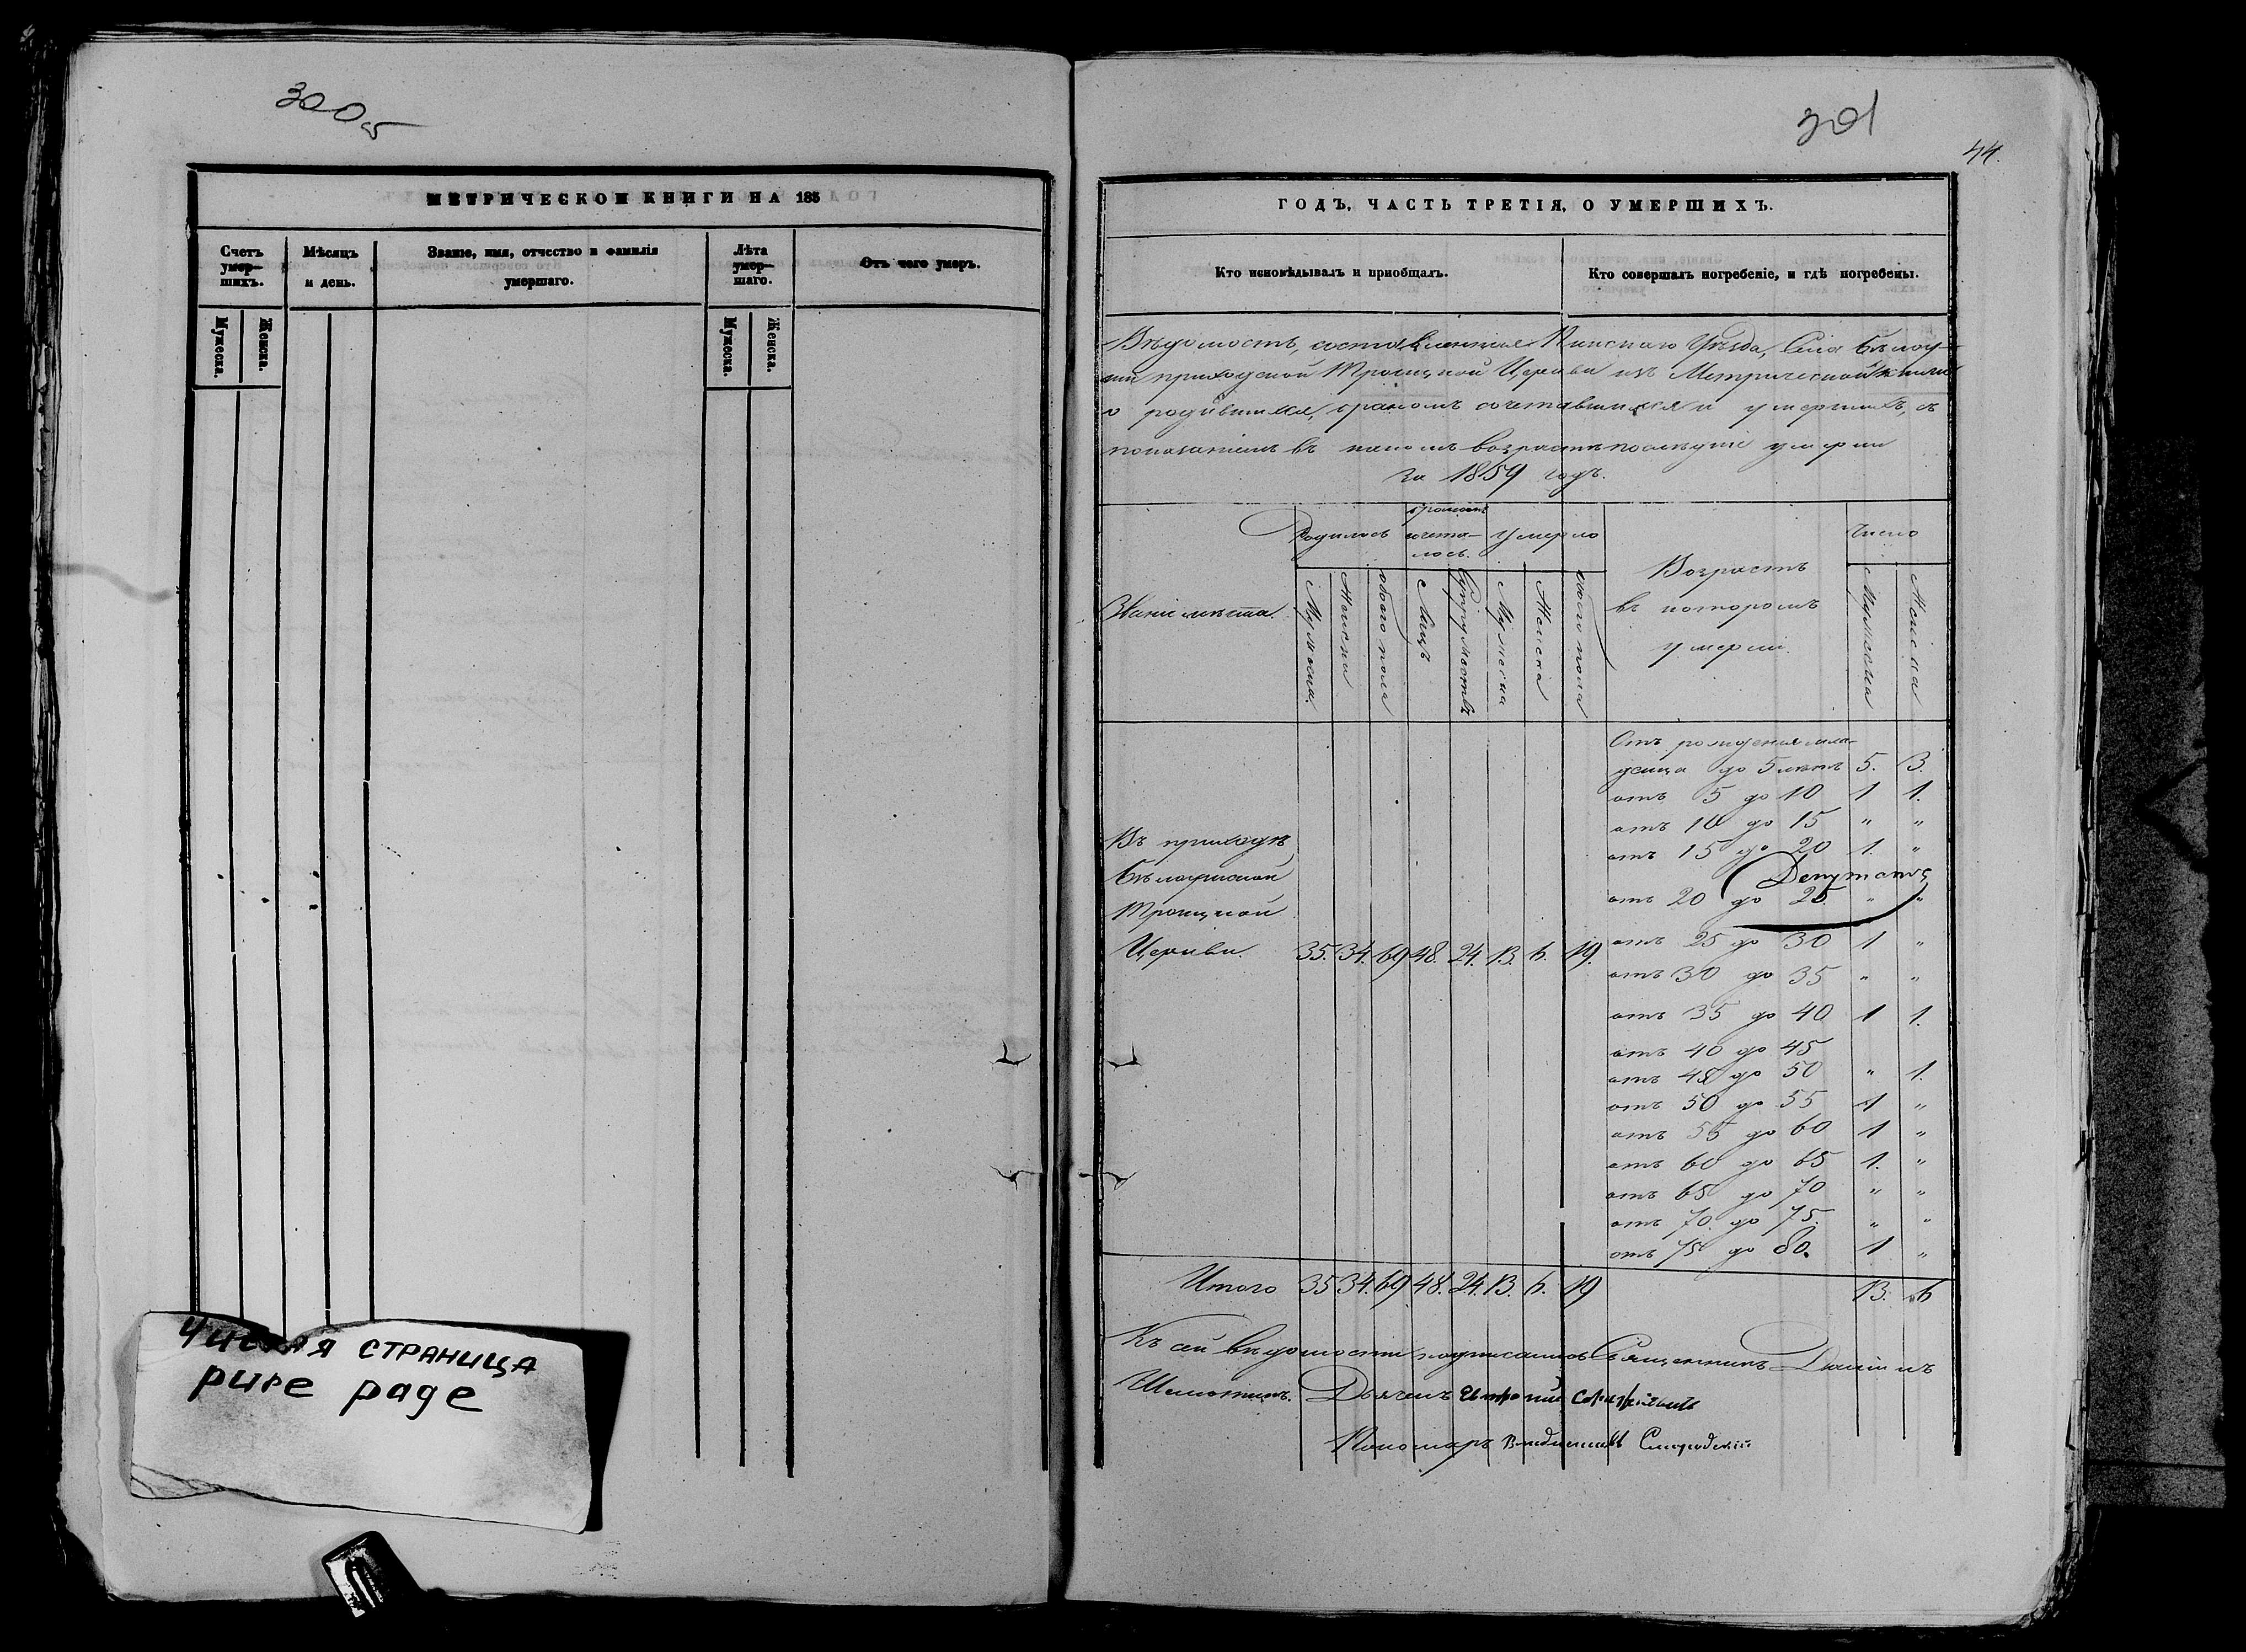 300об
МЕТРИЧЕСКОЙ КНИГИ НА 185
Счетъ умер-шихъ.
Мѣсяцъ и день.
Званіе, имя, отчество и фамилія умершаго.
Лѣта умер-шаго.
Отъ чего умеръ.
Мужеска. Женска.
Мужеска. Женска.
Чистая СТРАНИЦА
pure page
301
44.
ГОДЪ, ЧАСТЬ ТРЕТІЯ, О УМЕРШИХЪ.
Кто исповѣдывалъ и пріобщалъ.
Кто совершалъ погребеніе, и гдѣ погребены.
Вѣдомость, составленная Пинскаго Уѣзда, Села
приходской Троицкой Церкви изъ Метрической книги
о родившихся, бракомъ сочетавшихся и умершихъ, съ
показаніемъ въ какомъ возрастѣ послѣдніе умерли
за 1859 годъ.
Званіе мѣста.
Родилось
бракомъ сочета-лось.
Умерло
Возрастъ
въ которомъ
умерли.
Число
Мужеска. Женска обоего пола Лицъ Супружествъ Мужеска Женска обоего пола Мужеска Женска
Отъ рожденія мла-
денца до 5 лѣтъ 5. 3.
отъ 5 до 10 1 1.
отъ 10 до 15 " "
отъ 15 до 20 1. "
Депутатъ
отъ 20 до 25. " "
отъ 25 до 30 1 "
отъ 30 до 35 " "
отъ 35 до 40 1 1.
отъ 40 до 45
отъ 45 до 50 " 1.
отъ 50 до 55 1 "
отъ 55 до 60 1 "
отъ 60 до 65 1. "
отъ 65 до 70 " "
отъ 70. до 75. " "
отъ 75 до 80. 1 "
Въ приходѣ
Троицкой
Церкви. 35. 34. 69 48. 24. 13. 6. 19.
Итого 35 34. 69 48. 24. 13. 6. 19 13. 6
Къ сей вѣдомости подписались Священникъ
Дьячекъ
Пономарь Смородскій